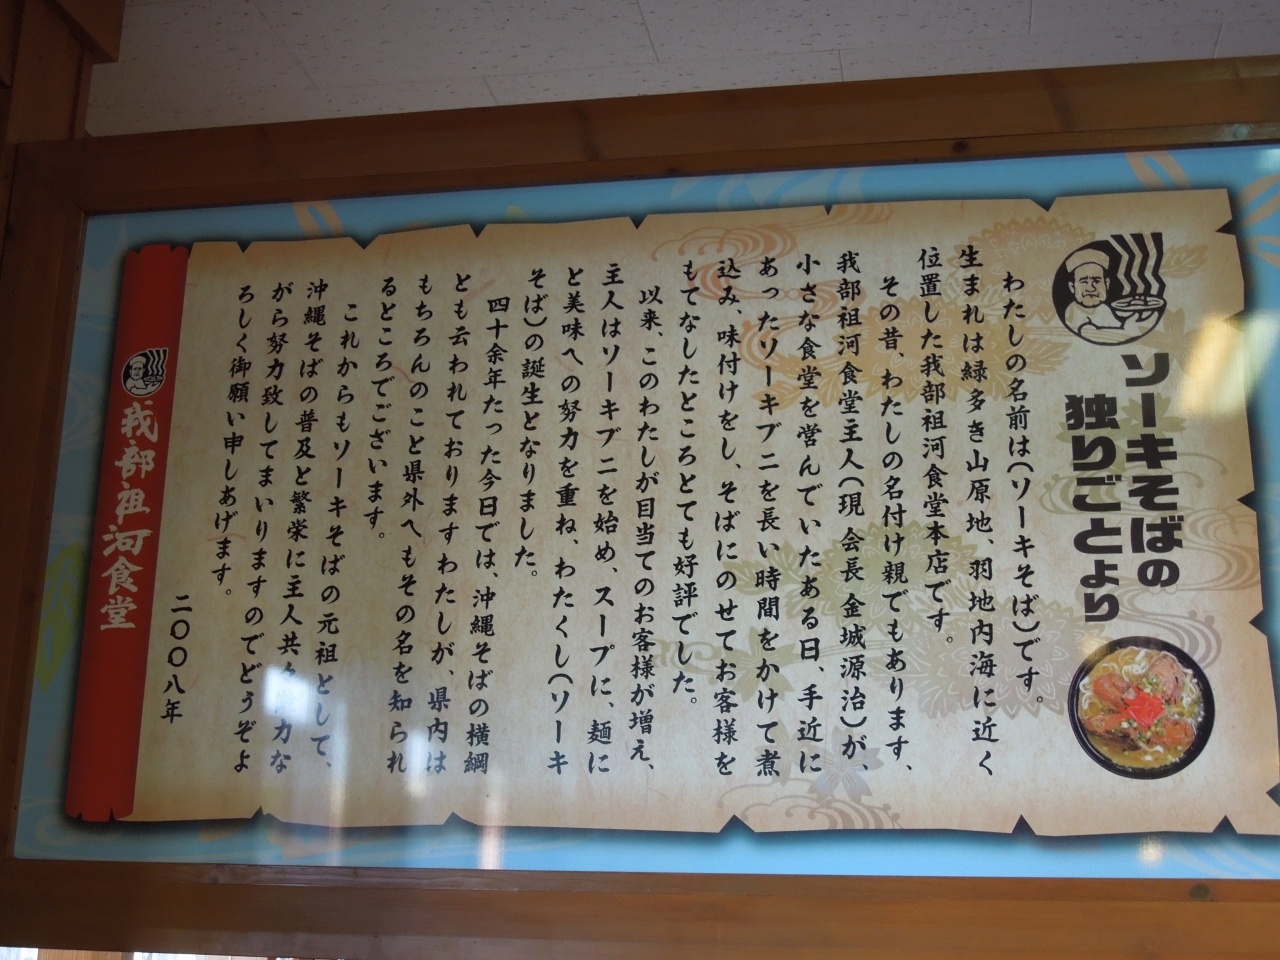 ソーキそばの
独りごとより
わたしの名前は(ソーキそば)です。
生まれは緑多き山原地、羽地内海に近く
位置した我部祖河食堂本店です。
その昔、わたしの名付け親でもあります、
我部祖河食堂主人(現 会長 金城源治)が、
小さな食堂を営んでいたある日、手近に
あったソーキブニを長い時間をかけて煮
込み、味付けをし、そばにのせてお客様を
もてなしたところとても好評でした。
以来、このわたしが目当てのお客様が増え、
主人はソーキブニを始め、スープに、麺に
と美味への努力を重ね、わたくし(ソーキ
そば)の誕生となりました。
四十余年たった今日では、沖縄そばの横綱
とも云われておりますわたしが、県内は
もちろんのこと県外へもその名を知られ
るところでございます。
これからもソーキそばの元祖として、
沖縄そばの普及と繁栄に主人共々 力な
がら努力致してまいりますのでどうぞよ
ろしく御願い申しあげます。
二〇〇八年
我部祖河食堂